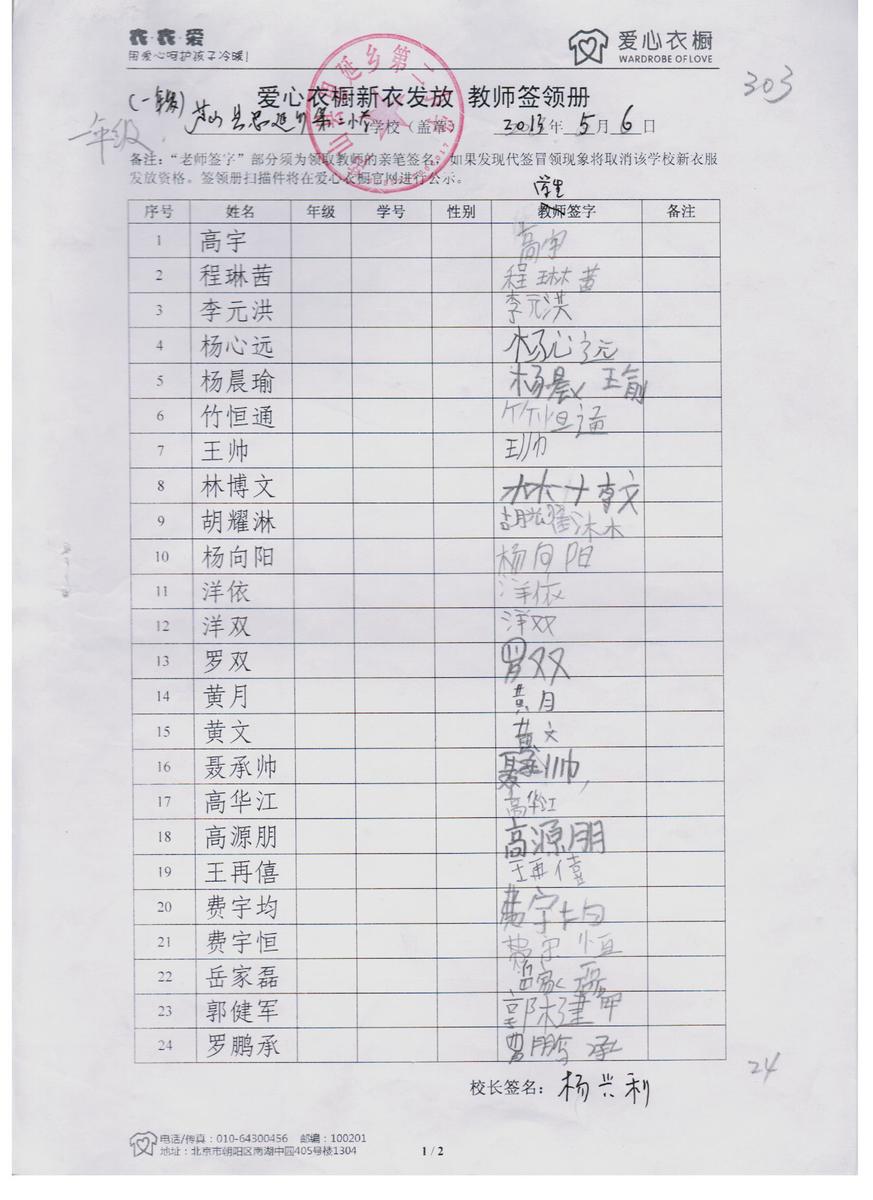 衣·衣·爱
用爱心呵护孩子冷暖!
爱心衣橱
WARDROBE OF LOVE
303
爱心衣橱新衣发放 教师签领册
(一年级)
芦山县思延乡第二小学学校(盖章) 2013年5月6日
一年级
备注:“老师签字”部分须为领取教师的亲笔签名,如果发现代签冒领现象将取消该学校新衣服
发放资格。签领册扫描件将在爱心衣橱官网进行公示。
学生
序号 姓名 年级 学号 性别 教师签字 备注
1 高宇 高宇
2 程琳茜 程琳茜
3 李元洪 李元洪
4 杨心远 杨心远
5 杨晨瑜 杨晨瑜
6 竹恒通 竹恒通
7 王帅 王帅
8 林博文 林博文
9 胡耀淋 胡耀淋
10 杨向阳 杨向阳
11 洋依 洋依
12 洋双 洋双
13 罗双 罗双
14 黄月 黄月
15 黄文 黄文
16 聂承帅 聂承帅
17 高华江 高华江
18 高源朋 高源朋
19 王再僖 王再僖
20 费宇均 费宇均
21 费宇恒 费宇恒
22 岳家磊 岳家磊
23 郭健军 郭健军
24 罗鹏承 罗鹏承
24
校长签名: 杨兴利
电话/传真:010-64300456 邮编:100201
地址:北京市朝阳区南湖中园405号楼1304
1 / 2